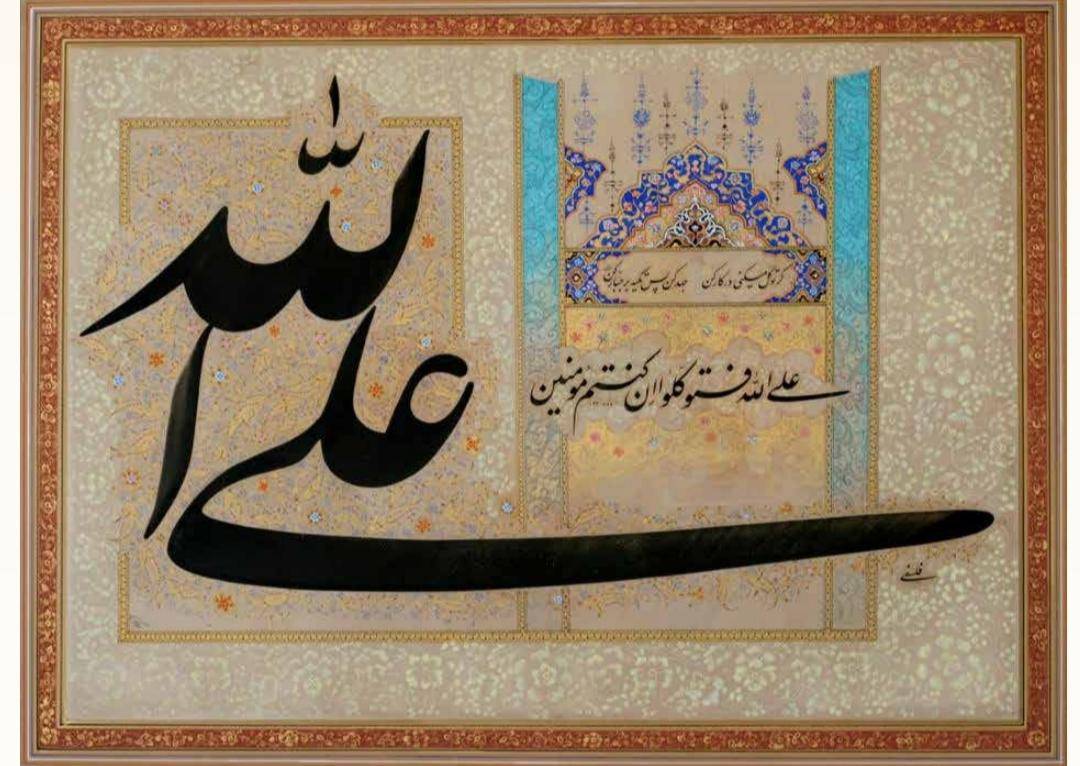 علی الله
گر توکل میکنی در کار کن جهد کن پس تکیه بر جبار کن
علی الله فتوکلوا ان کنتم مؤمنین
فلسفی